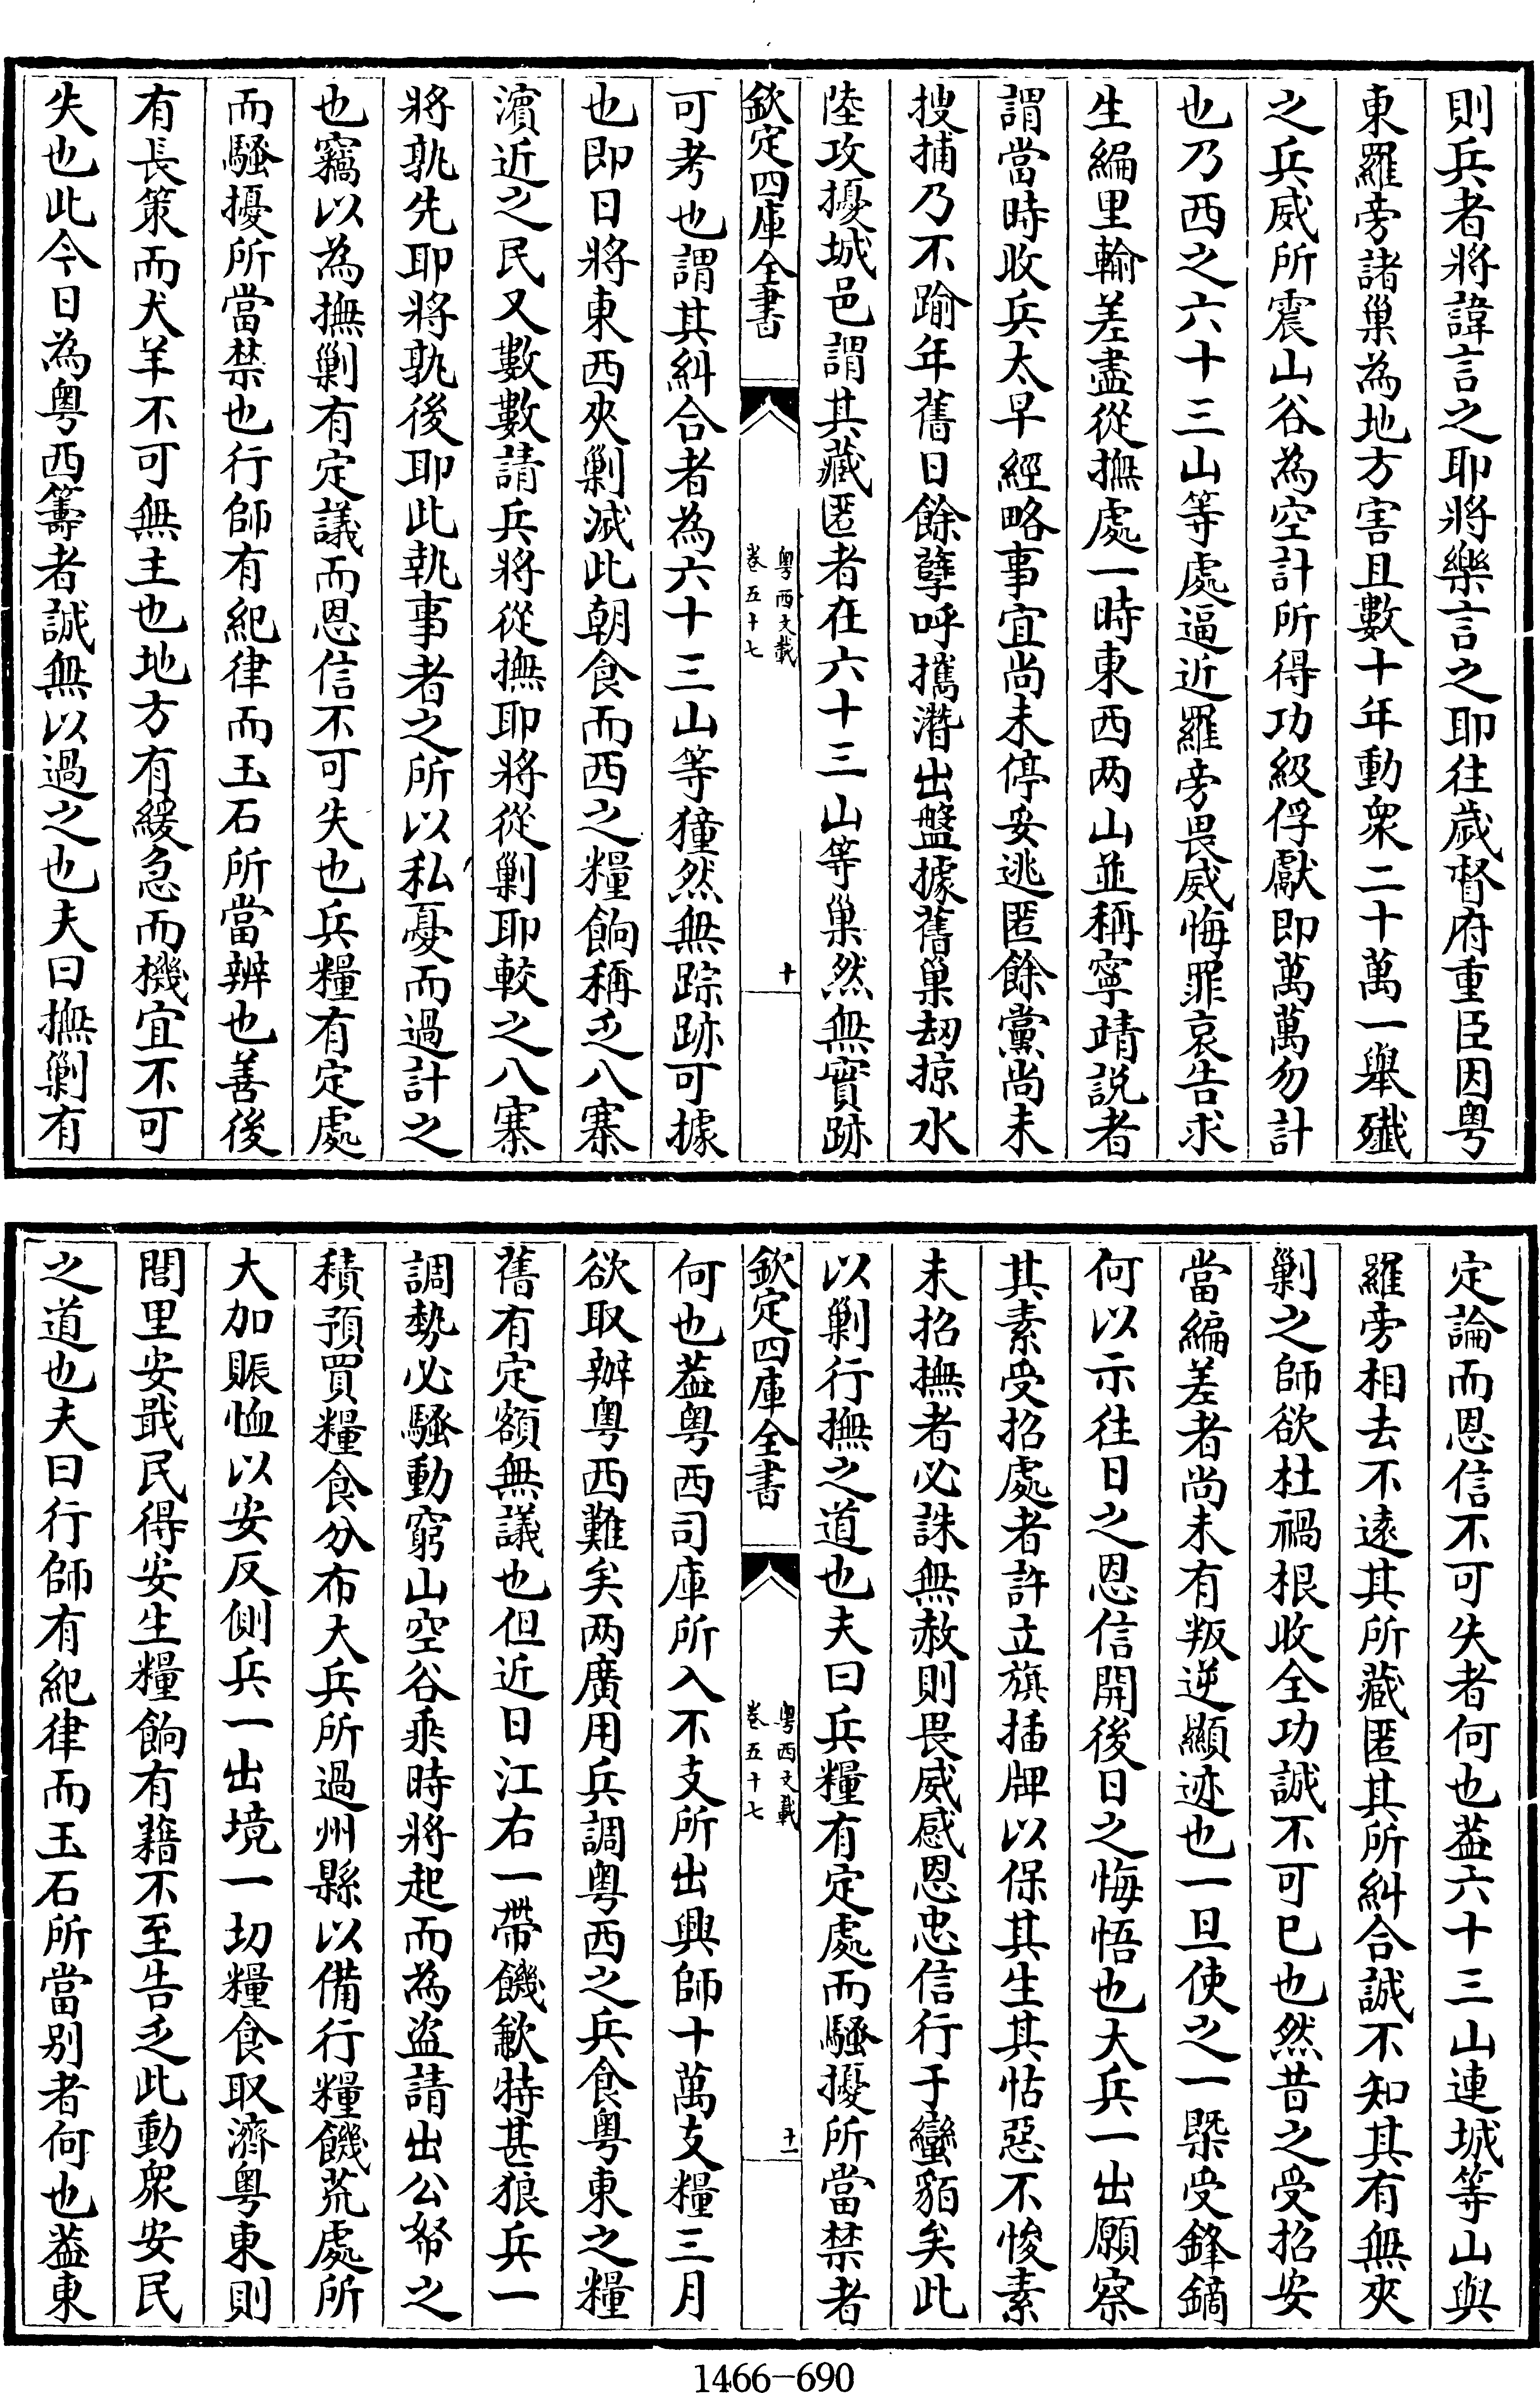 則兵者將諱言之耶將樂言之耶往歲督府重臣因粵
東羅旁諸巢為地方害且數十年動衆二十萬一舉殲
之兵威所震山谷為空計所得功級俘獻即萬萬勿計
也乃西之六十三山等處逼近羅旁畏威悔罪哀告求
生編里輸差盡從撫處一時東西两山並稱寧靖説者
謂當時收兵太早經略事宜尚未停妥逃匿餘黨尚未
搜捕乃不踰年舊日餘孽呼攜潛出盤據舊巢刼掠水
陸攻擾城邑謂其藏匿者在六十三山等巢然無實跡
欽定四庫全書
粵西文載
卷五十七
十
可考也謂其糾合者為六十三山等獞然無踪跡可據
也即日將東西夾剿滅此朝食而西之糧餉稱乏八寨
濵近之民又數數請兵將從撫耶將從剿耶較之八寨
將孰先耶將孰後耶此執事者之所以私憂而過計之
也竊以為撫剿有定議而恩信不可失也兵糧有定處
而騷擾所當禁也行師有紀律而玉石所當辨也善後
有長策而犬羊不可無主也地方有緩急而機宜不可
失也此今日為粵西籌者誠無以過之也夫曰撫剿有
定論而恩信不可失者何也葢六十三山連城等山與
羅旁相去不遠其所藏匿其所糾合誠不知其有無夾
剿之師欲杜禍根收全功誠不可已也然昔之受招安
當編差者尚未有叛逆顯迹也一旦使之一槩受鋒鏑
何以示往日之恩信開後日之悔悟也大兵一出願察
其素受招處者許立旗插牌以保其生其怙惡不悛素
未招撫者必誅無赦則畏威感恩忠信行于蠻貊矣此
以剿行撫之道也夫曰兵糧有定處而騷擾所當禁者
欽定四庫全書
粵西文載
卷五十七
十一
何也葢粵西司庫所入不支所出興師十萬支糧三月
欲取辦粵西難矣两廣用兵調粵西之兵食粵東之糧
舊有定額無議也但近日江右一帶饑歉特甚狼兵一
調勢必騷動窮山空谷乘時將起而為盗請出公帑之
積預買糧食分布大兵所過州縣以備行糧饑荒處所
大加賑恤以安反側兵一出境一切糧食取濟粵東則
閭里安戢民得安生糧餉有藉不至告乏此動衆安民
之道也夫曰行師有紀律而玉石所當別者何也葢東
1466-690